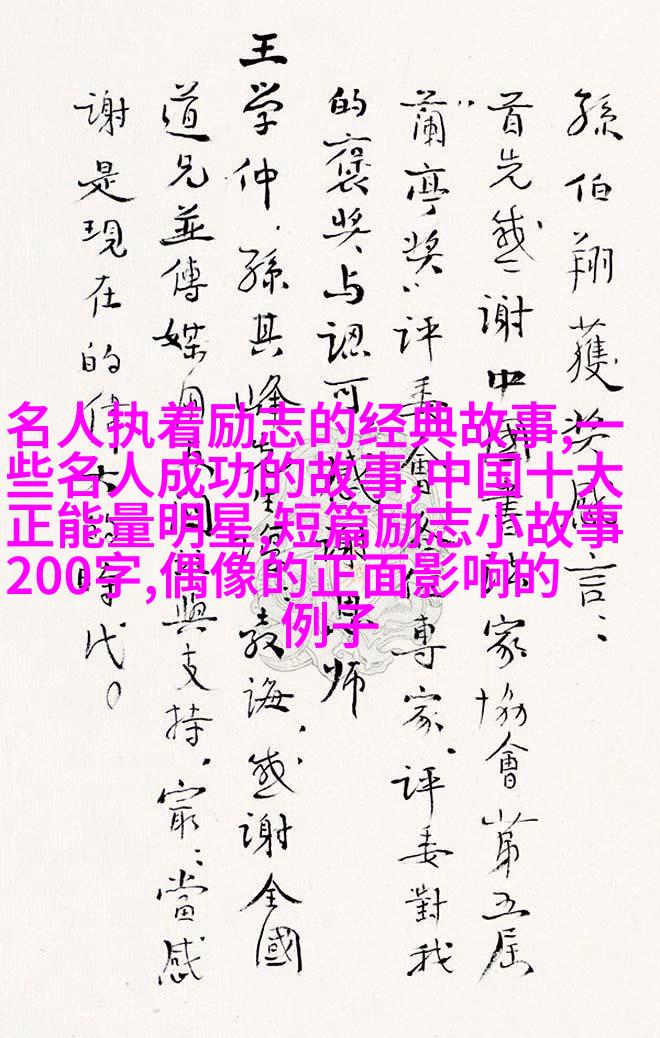 孫伯翔獲奖感言：
首先感谢中國書法家協會第五届
“蘭亭奖”评委會各位專家、评委對我
的褒奖与認可，感謝恩师
王学仲、孫其峰先生教诲，感谢全國
道兄並傳媒與支持，最：當感
谢是現在的偉大的時代。
名人执着励志的经典故事,一
些名人成功的故事,中国十大
正能量明星,短篇励志小故事
200字,偶像的正面影响的
例子